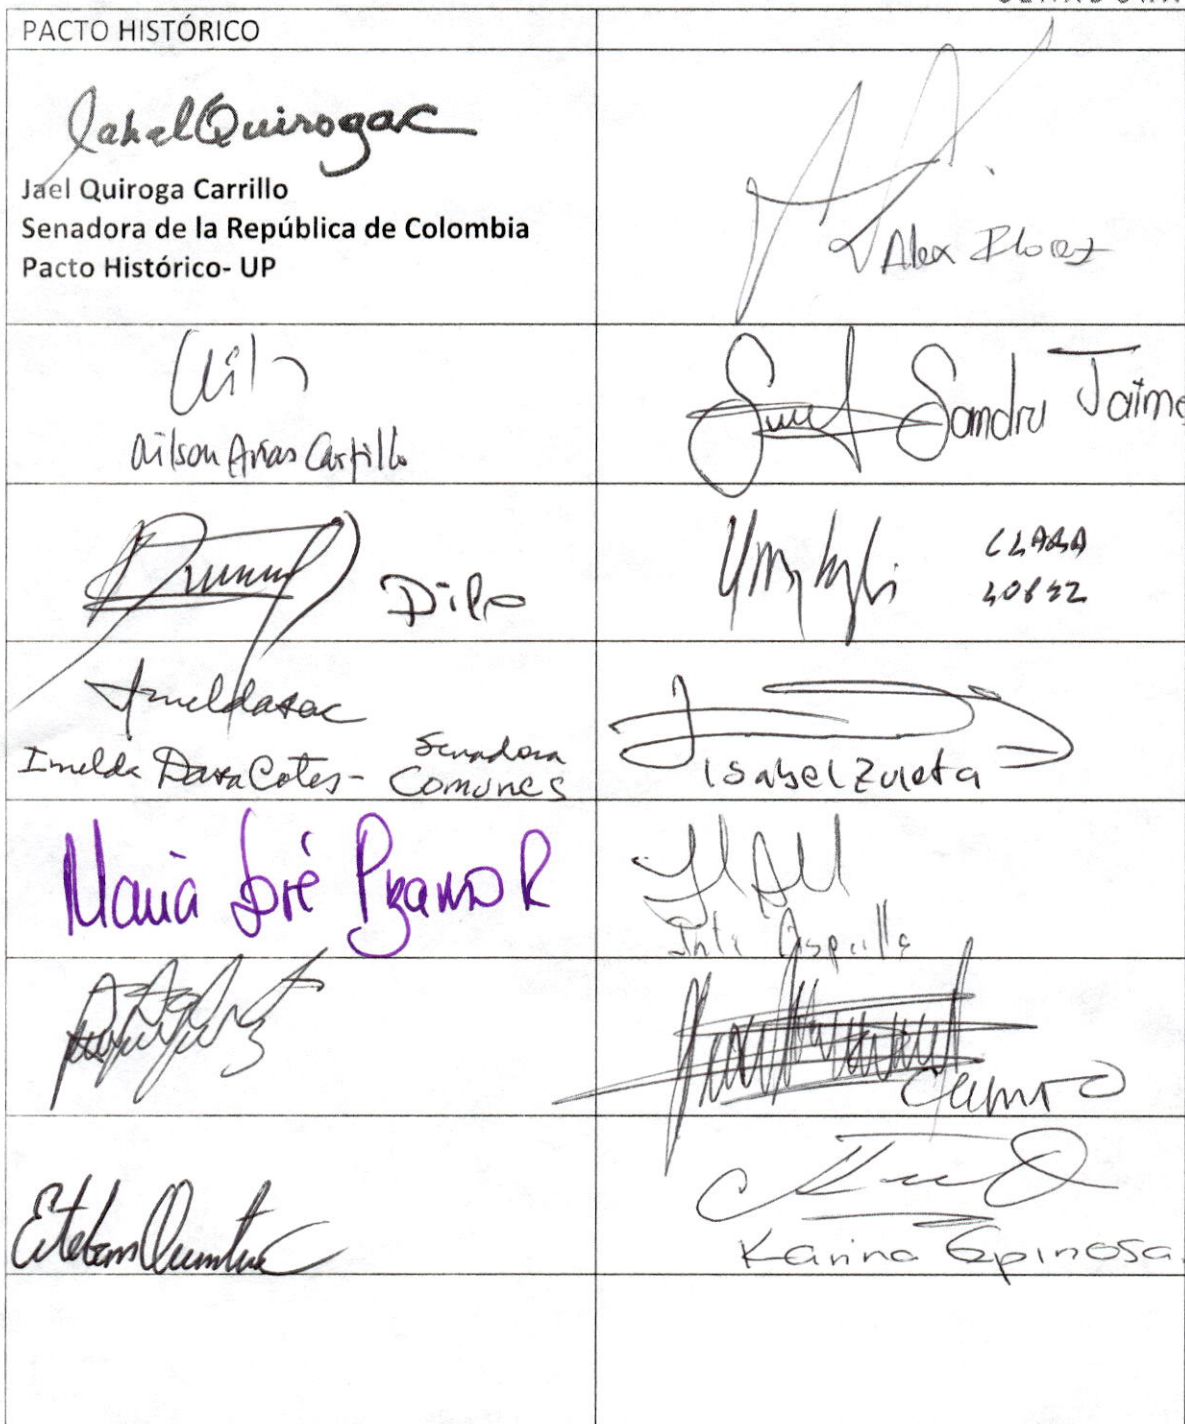 PACTO HISTÓRICO
Jahel Quiroga C
Jael Quiroga Carrillo
Senadora de la República de Colombia
Pacto Histórico- UP
Alex Florez
Wilson Arias Castillo
Sandra Jaime
Dilo
CLARA
LOPEZ
Imelda Daza Cotes - Senadora
Comunes
Isabel Zuleta
María José Pizarro R
Inti Asprilla
Esteban Quintero C
Karina Espinosa.